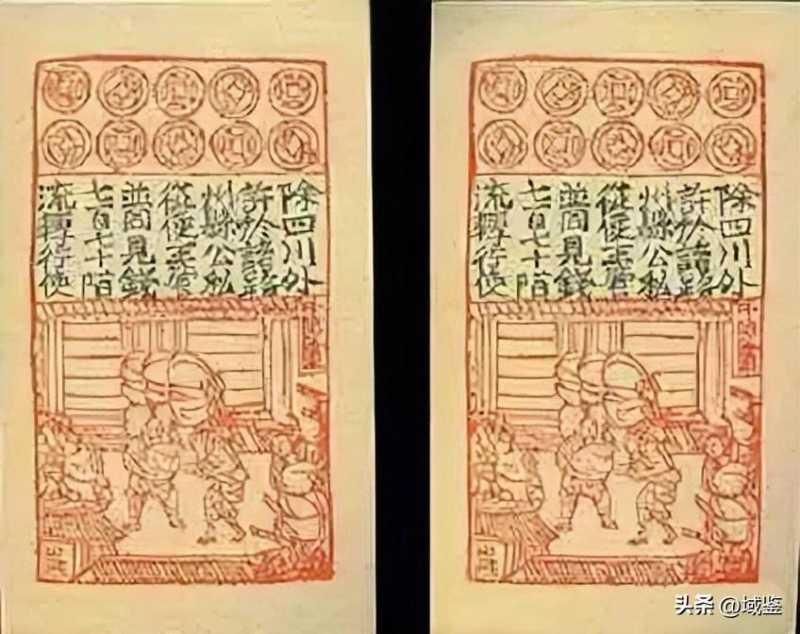 除四川外
許於諸路
州縣公私
從便主管
並同見錢
七百七十陌
流轉行使
除四川外
許於諸路
州縣公私
從便主管
並同見錢
七百七十陌
流轉行使
头条 @域鉴